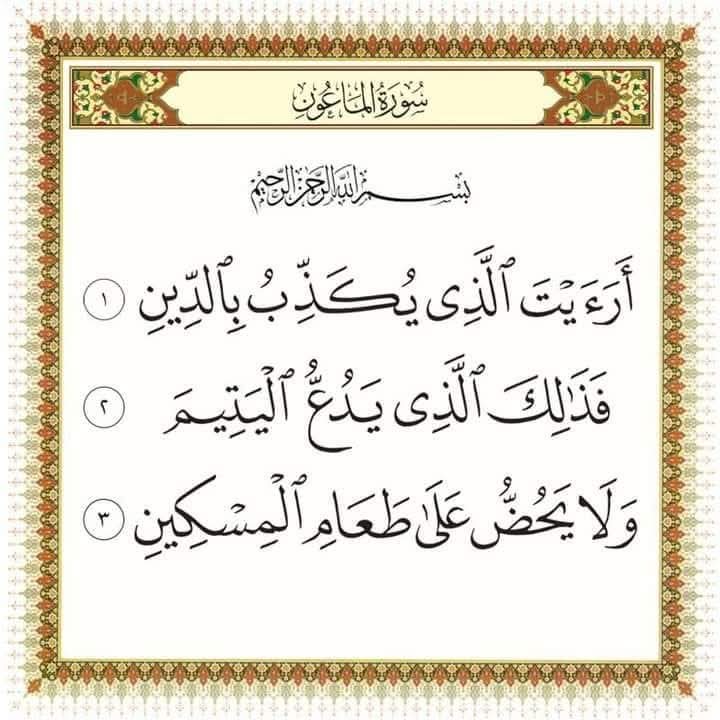 سُورَةُ المَاعُونِ
بِسْمِ اللَّهِ الرَّحْمَٰنِ الرَّحِيمِ
أَرَءَيْتَ ٱلَّذِى يُكَذِّبُ بِٱلدِّينِ ١
فَذَٰلِكَ ٱلَّذِى يَدُعُّ ٱلْيَتِيمَ ٢
وَلَا يَحُضُّ عَلَىٰ طَعَامِ ٱلْمِسْكِينِ ٣